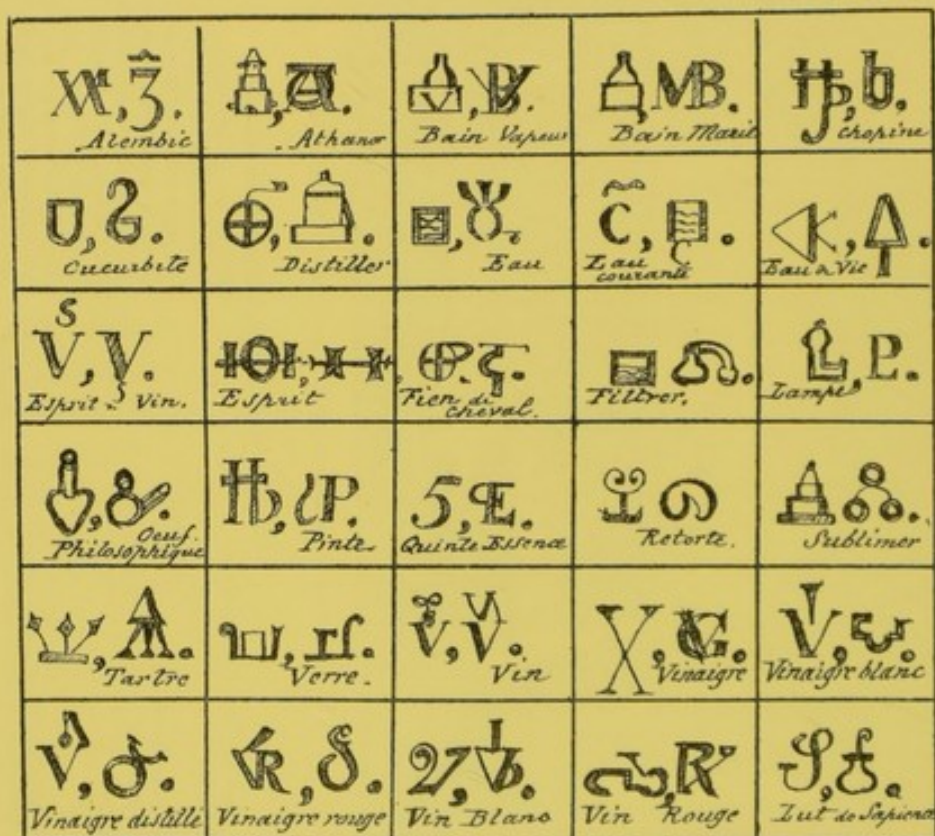 Alembic
Athanor
Bain Vapeur
MB.
Bain Marie
chopine
Cucurbite
Distiller
Eau
Eau
courante
Eau de Vie
S
V, V.
Esprit de Vin.
Esprit
Fien de
cheval.
Filtrer.
L, P.
Lampe
Oeuf.
Philosophique
Pinte
5, E.
Quinte Essence
Retorte.
Sublimer
Tartre
Verre.
Vin
Vinaigre
Vinaigre blanc
Vinaigre distillé
Vinaigre rouge
Vin Blanc
Vin Rouge
Lut de Sapience